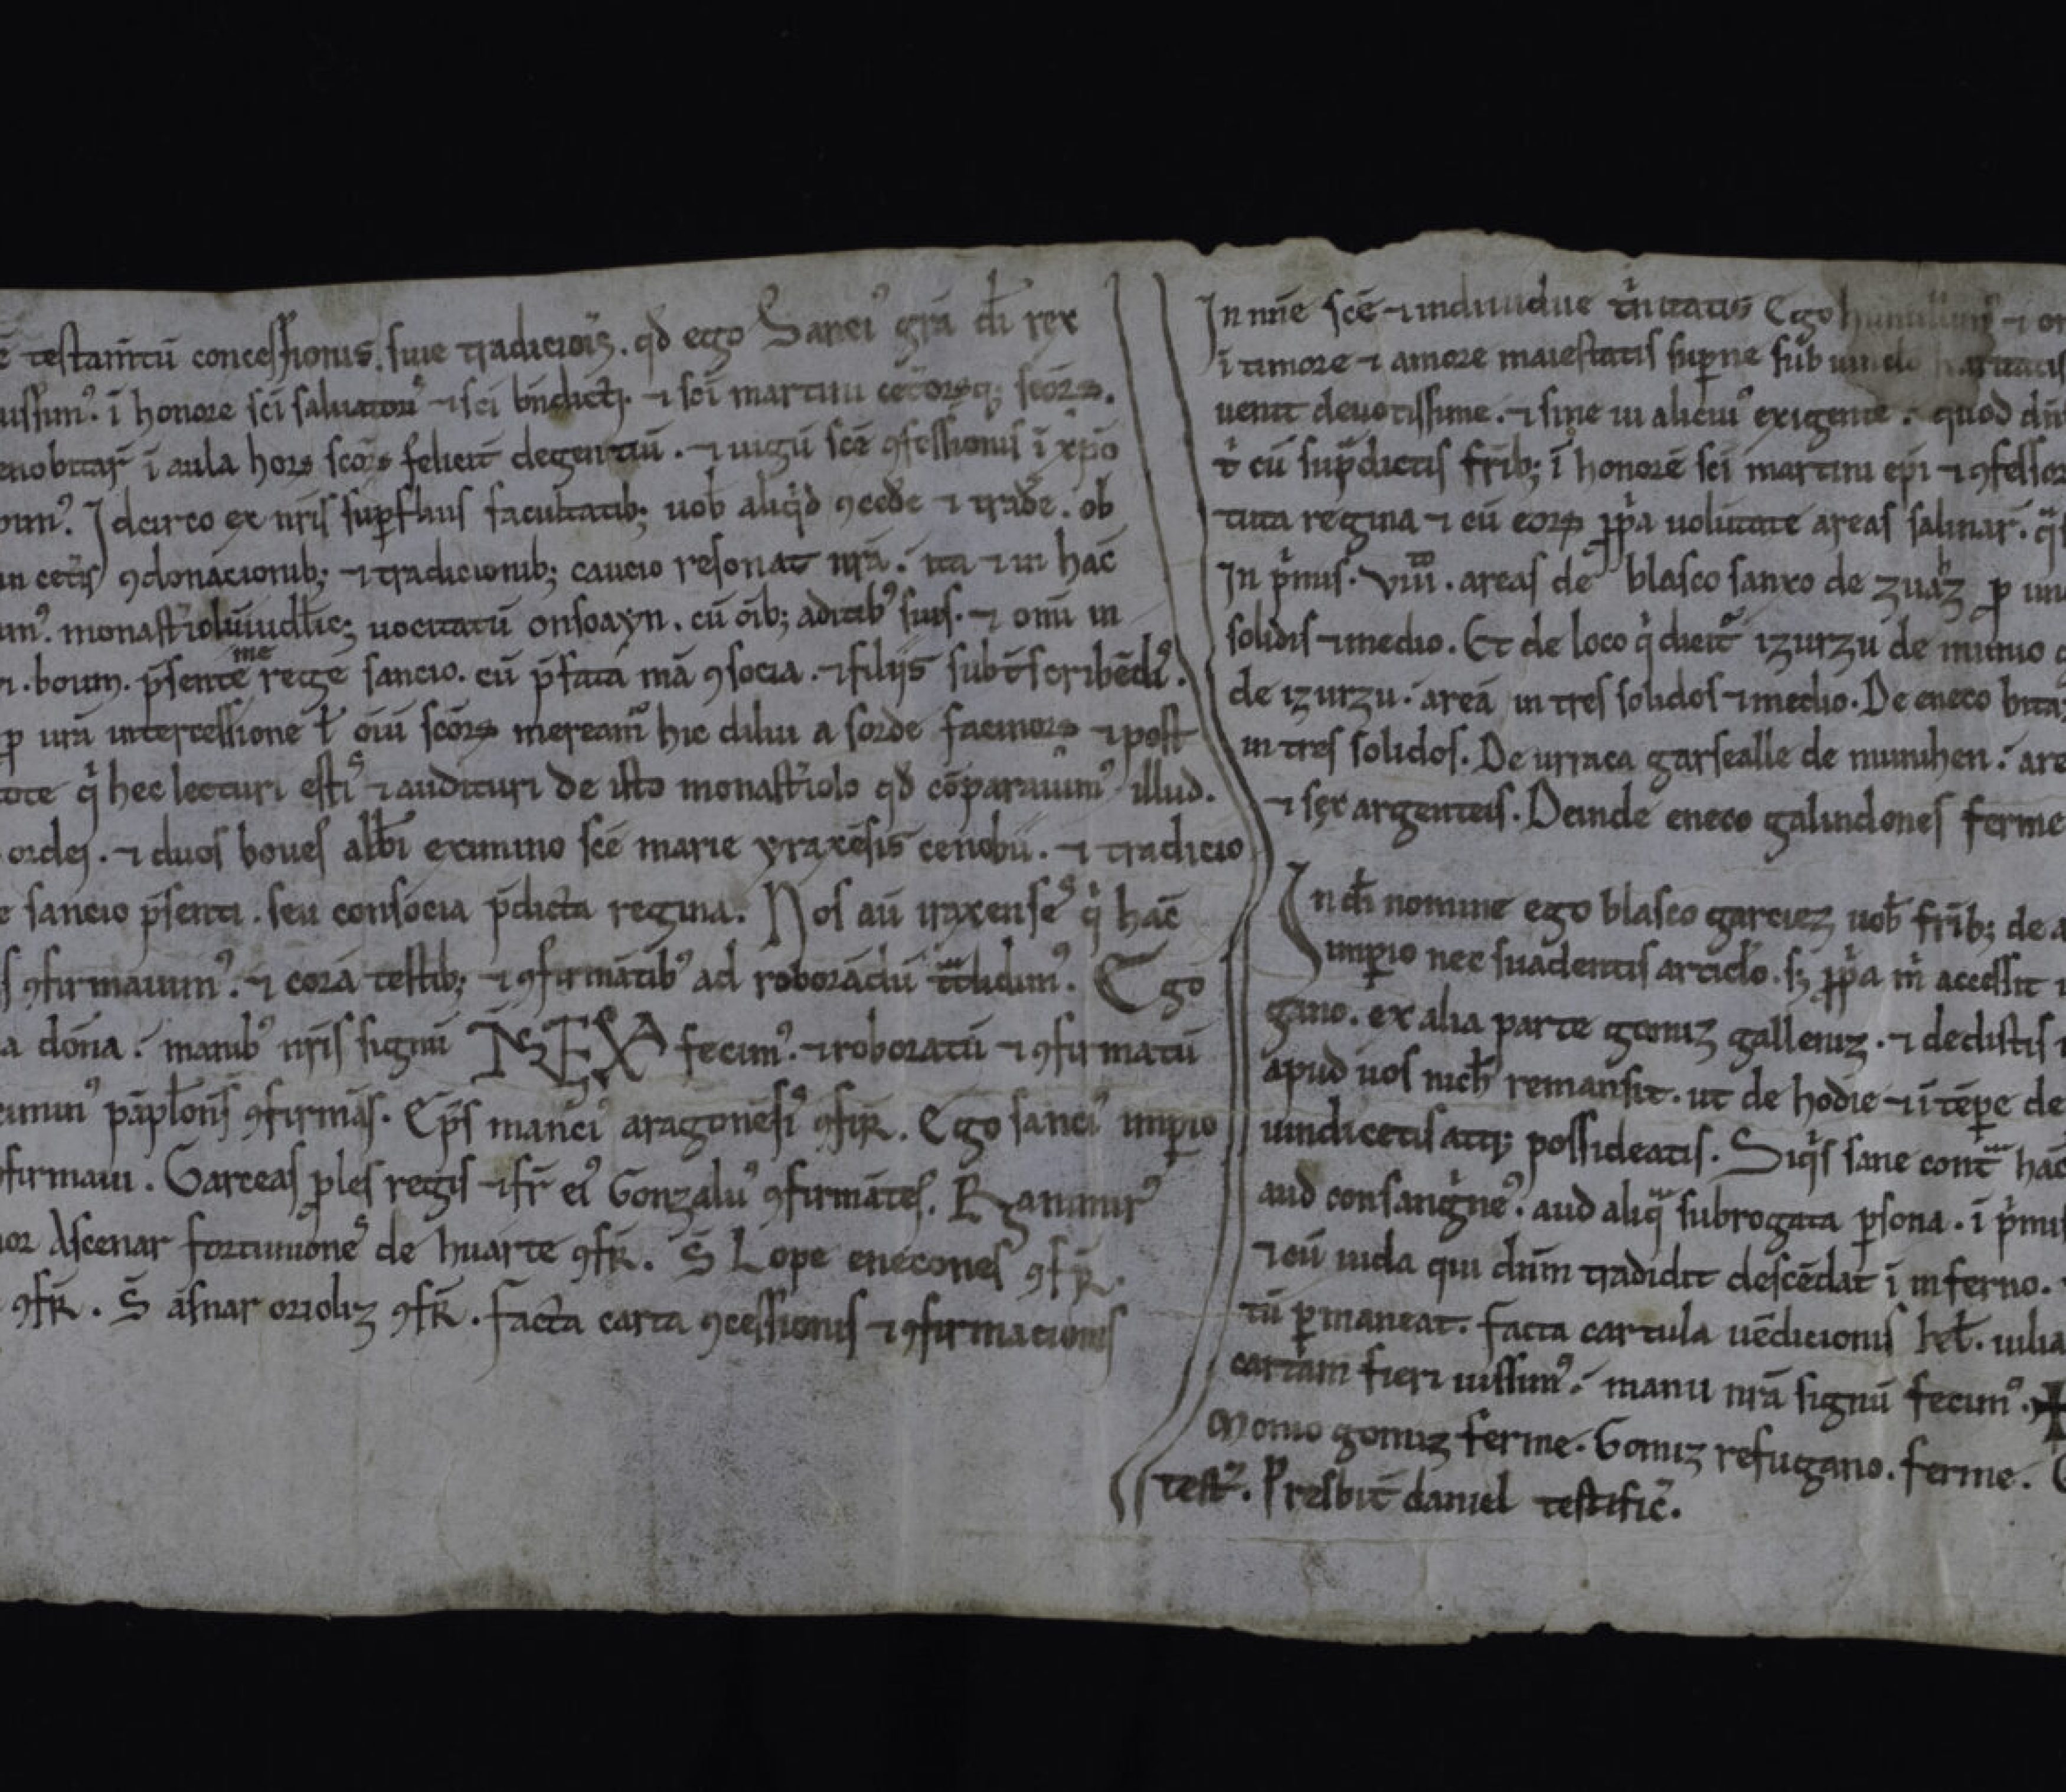 testam̄tū concessionis. siue tradiciōis. qd̄ ego Sanciꝰ gr̄a dī rex
iussimꝰ. ī honore sc̄i saluatoris ⁊ sc̄i bn̄dicti. ⁊ sc̄i martini cetorꝝq; sc̄orꝝ.
ī aula horꝝ sc̄orꝝ felicit̄ degentiū. ⁊ uigū sc̄e ꝯfessionis ī xp̄o
Idcirco ex nr̄is suꝑfluis facultatib; uob̄ aliqͥd ꝯcede ⁊ trade. ob
ꝯdonacionib; ⁊ tradicionib; caucio resonat nr̄a. ita ⁊ in hac̄
monast̄iolū iudł̄ic; uocitatū onsoayn. cū oīb; aditibꝰ suis. ⁊ om̄i in
boum. p̄sente me rege sancio. cū p̄fata mā ꝯsocia. ⁊ filijs subt̄scribēdis.
ꝑ ur̄a intercessione ł oīū sc̄orꝝ mereamr̄ hic dilui a sorde facinorꝝ ⁊ post
qͥ hec lecturi estis ⁊ audituri de isto monast̄iolo qd̄ cōparauimꝰ illud.
ordej. ⁊ duos boues alb̄i eximino sc̄e marie yraxēsis cenobii. ⁊ tradicio
sancio p̄senti. seu consocia p̄dicta regina. Nos aū iraxenses qͥ hac̄
ꝯfirmauimꝰ. ⁊ corā testib; ⁊ ꝯfirmātibꝰ ad roborādū tͣdidimꝰ. Ego
dōna. manibꝰ nr̄is signū fecimꝰ. ⁊ roboratū ⁊ ꝯfirmatū
pāpłonīs ꝯfirmās. Ep̄s manciꝰ aragonēsis ꝯfir̄. Ego sanciꝰ imꝑio
ꝯfirmaui. Garceas ꝓles regis ⁊ fr̄ eiꝰ Gonzaluꝰ ꝯfirmātes. Ranimirꝰ
Ascenar fortuniones de huarte ꝯfr̄. S̄ Lope enecones ꝯfr̄.
ꝯfr̄. S̄ asnar orioliz ꝯfr̄. facta carta ꝯcessionis ⁊ ꝯfirmacionis
In nn̄e sc̄e ⁊ indiuidue tͥnitatis Ego
ī timore ⁊ amore maiestatis suꝑne sub
uenit deuotissime. ⁊ sine ui alicuiꝰ exigente. quod
ł cū supͣdictis fr̄ib; ī honore sc̄i martini ep̄i ⁊
regina ⁊ cū eorꝝ ꝓpͥa uolūtate areas salinar̄.
In pͥmis. VIIII. areas de blasco sanxo de zuaz ꝑ
solidis ⁊ medio. Et de loco qͥ dicit̄ izurzu de munio
de izurzu. areā in tres solidos ⁊ medio. De eneco
in tres solidos. De urraca garsealle de munihen.
⁊ sex argenteis. Deinde eneco galindones ferme
In dī nomine ego blasco garciez uob̄ fr̄ib; de
imꝑio nec suadentis articło. s; ꝓpͥa m̄ accessit
gano. ex alia parte gomiz galleniz. ⁊ dedistis
apud uos nich̄ remansit. ut de hodie ⁊ ī tēpe de
uindicetis atq; possideatis. Siqͥs sane contͣ hac̄
aud consangͥneꝰ. aud aliqͣ subrogata ꝑsona. ī pͥmis
⁊ cū iuda qui dn̄m tradidit descēdat ī inferno.
ꝑmaneat. facta cartula uēdicionis kł.
cartam fieri iussimꝰ. manu nr̄a signū fecimꝰ. ✠
Monio gomiz ferme. Gomiz refugano. ferme.
test̄. Presbit̄ daniel testific̄.